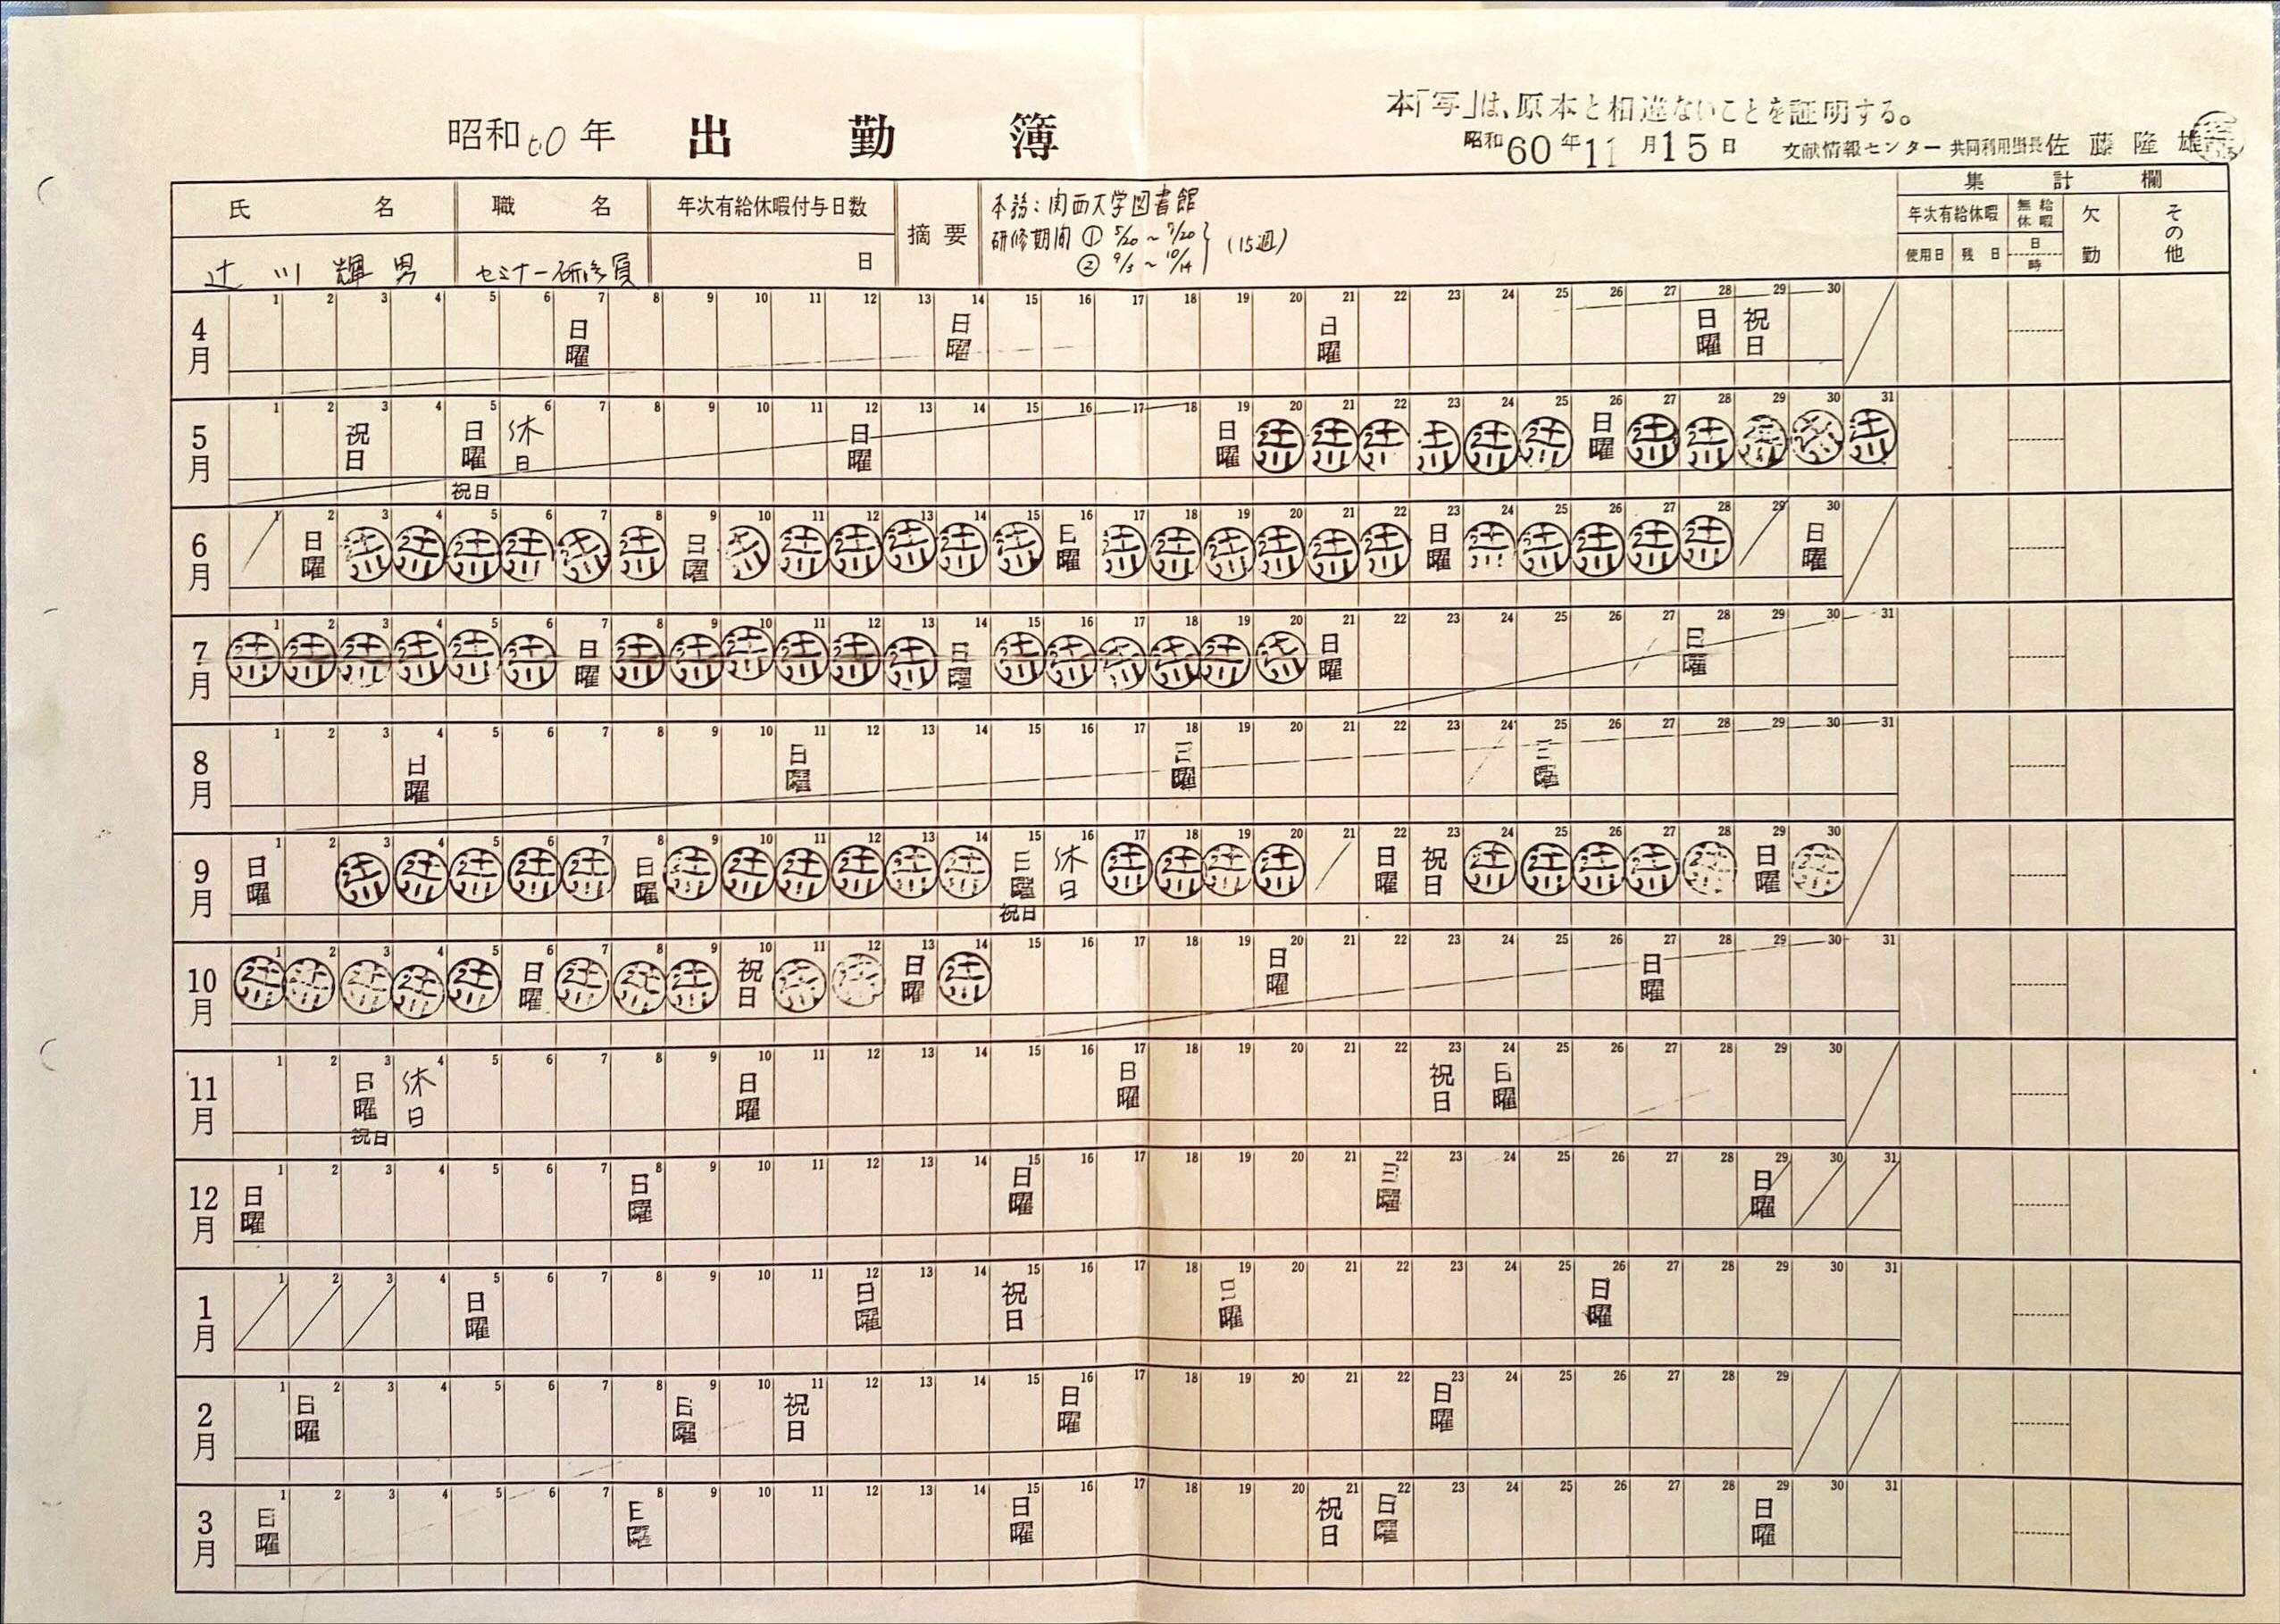 本「写」は、原本と相違ないことを証明する。
昭和60年11月15日 文献情報センター 共同利用掛長 佐藤隆雄
昭和60年 出勤簿
氏名 職名 年次有給休暇付与日数 摘要
辻川輝男 セミナー研修員 日
本務:関西大学図書館
研修期間 ① 5/20~7/20
② 9/3~10/14
(15週)
集計欄
年次有給休暇 無給休暇 欠勤 その他
使用日 残日 日 時
4月 1 2 3 4 5 6 7 8 9 10 11 12 13 14 15 16 17 18 19 20 21 22 23 24 25 26 27 28 29 30
日曜 日曜 日曜 日曜 祝日
5月 1 2 3 4 5 6 7 8 9 10 11 12 13 14 15 16 17 18 19 20 21 22 23 24 25 26 27 28 29 30 31
祝日 日曜 休日 日曜 日曜 辻川 辻川 辻川 辻川 辻川 辻川 日曜 辻川 辻川 辻川 辻川 辻川
祝日
6月 1 2 3 4 5 6 7 8 9 10 11 12 13 14 15 16 17 18 19 20 21 22 23 24 25 26 27 28 29 30
日曜 辻川 辻川 辻川 辻川 辻川 辻川 日曜 辻川 辻川 辻川 辻川 辻川 辻川 日曜 辻川 辻川 辻川 辻川 辻川 辻川 日曜 辻川 辻川 辻川 辻川 辻川 日曜
7月 1 2 3 4 5 6 7 8 9 10 11 12 13 14 15 16 17 18 19 20 21 22 23 24 25 26 27 28 29 30 31
辻川 辻川 辻川 辻川 辻川 辻川 日曜 辻川 辻川 辻川 辻川 辻川 辻川 日曜 辻川 辻川 辻川 辻川 辻川 辻川 日曜 日曜
8月 1 2 3 4 5 6 7 8 9 10 11 12 13 14 15 16 17 18 19 20 21 22 23 24 25 26 27 28 29 30 31
日曜 日曜 日曜 日曜
9月 1 2 3 4 5 6 7 8 9 10 11 12 13 14 15 16 17 18 19 20 21 22 23 24 25 26 27 28 29 30
日曜 辻川 辻川 辻川 辻川 辻川 日曜 辻川 辻川 辻川 辻川 辻川 辻川 日曜 休日 辻川 辻川 辻川 辻川 日曜 祝日 辻川 辻川 辻川 辻川 辻川 日曜 辻川
祝日
10月 1 2 3 4 5 6 7 8 9 10 11 12 13 14 15 16 17 18 19 20 21 22 23 24 25 26 27 28 29 30 31
辻川 辻川 辻川 辻川 辻川 日曜 辻川 辻川 辻川 祝日 辻川 辻川 日曜 辻川 日曜 日曜
11月 1 2 3 4 5 6 7 8 9 10 11 12 13 14 15 16 17 18 19 20 21 22 23 24 25 26 27 28 29 30
日曜 休日 日曜 日曜 祝日 日曜
祝日
12月 1 2 3 4 5 6 7 8 9 10 11 12 13 14 15 16 17 18 19 20 21 22 23 24 25 26 27 28 29 30 31
日曜 日曜 日曜 日曜 日曜
1月 1 2 3 4 5 6 7 8 9 10 11 12 13 14 15 16 17 18 19 20 21 22 23 24 25 26 27 28 29 30 31
日曜 日曜 祝日 日曜 日曜
2月 1 2 3 4 5 6 7 8 9 10 11 12 13 14 15 16 17 18 19 20 21 22 23 24 25 26 27 28 29
日曜 日曜 祝日 日曜 日曜
3月 1 2 3 4 5 6 7 8 9 10 11 12 13 14 15 16 17 18 19 20 21 22 23 24 25 26 27 28 29 30 31
日曜 日曜 日曜 祝日 日曜 日曜